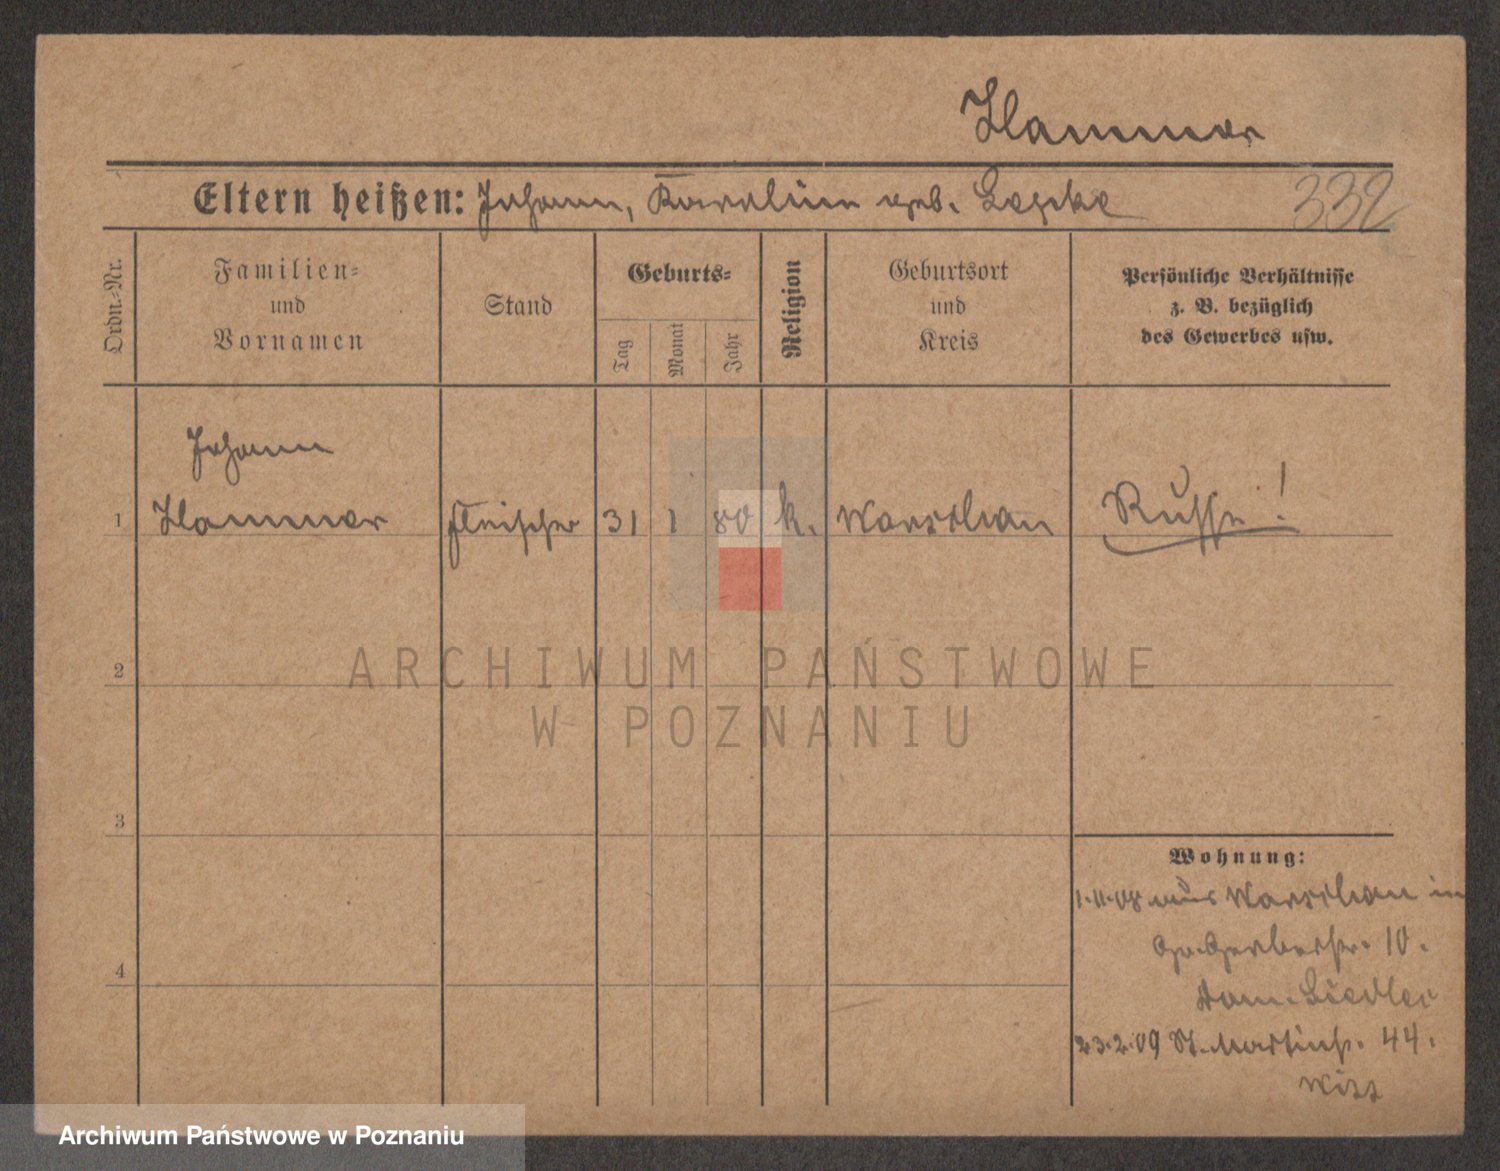 Hammer
Eltern heißen: Johann, Karoline geb.
332
Ordn.-Nr.
Familien-
und
Vornamen
Stand
Geburts-
Tag
Monat
Jahr
Religion
Geburtsort
und
Kreis
Persönliche Verhältnisse
z. B. bezüglich
des Gewerbes usw.
Johann
1 Hammer Fleischer 31 1 80 k. Warschau Russe!
2
3
4
Wohnung:
1.11.08 aus Warschau in
Gr. Gerberstr. 10.
23.2.09 St. Martinstr. 44.
ARCHIWUM PAŃSTWOWE
W POZNANIU
Archiwum Państwowe w Poznaniu